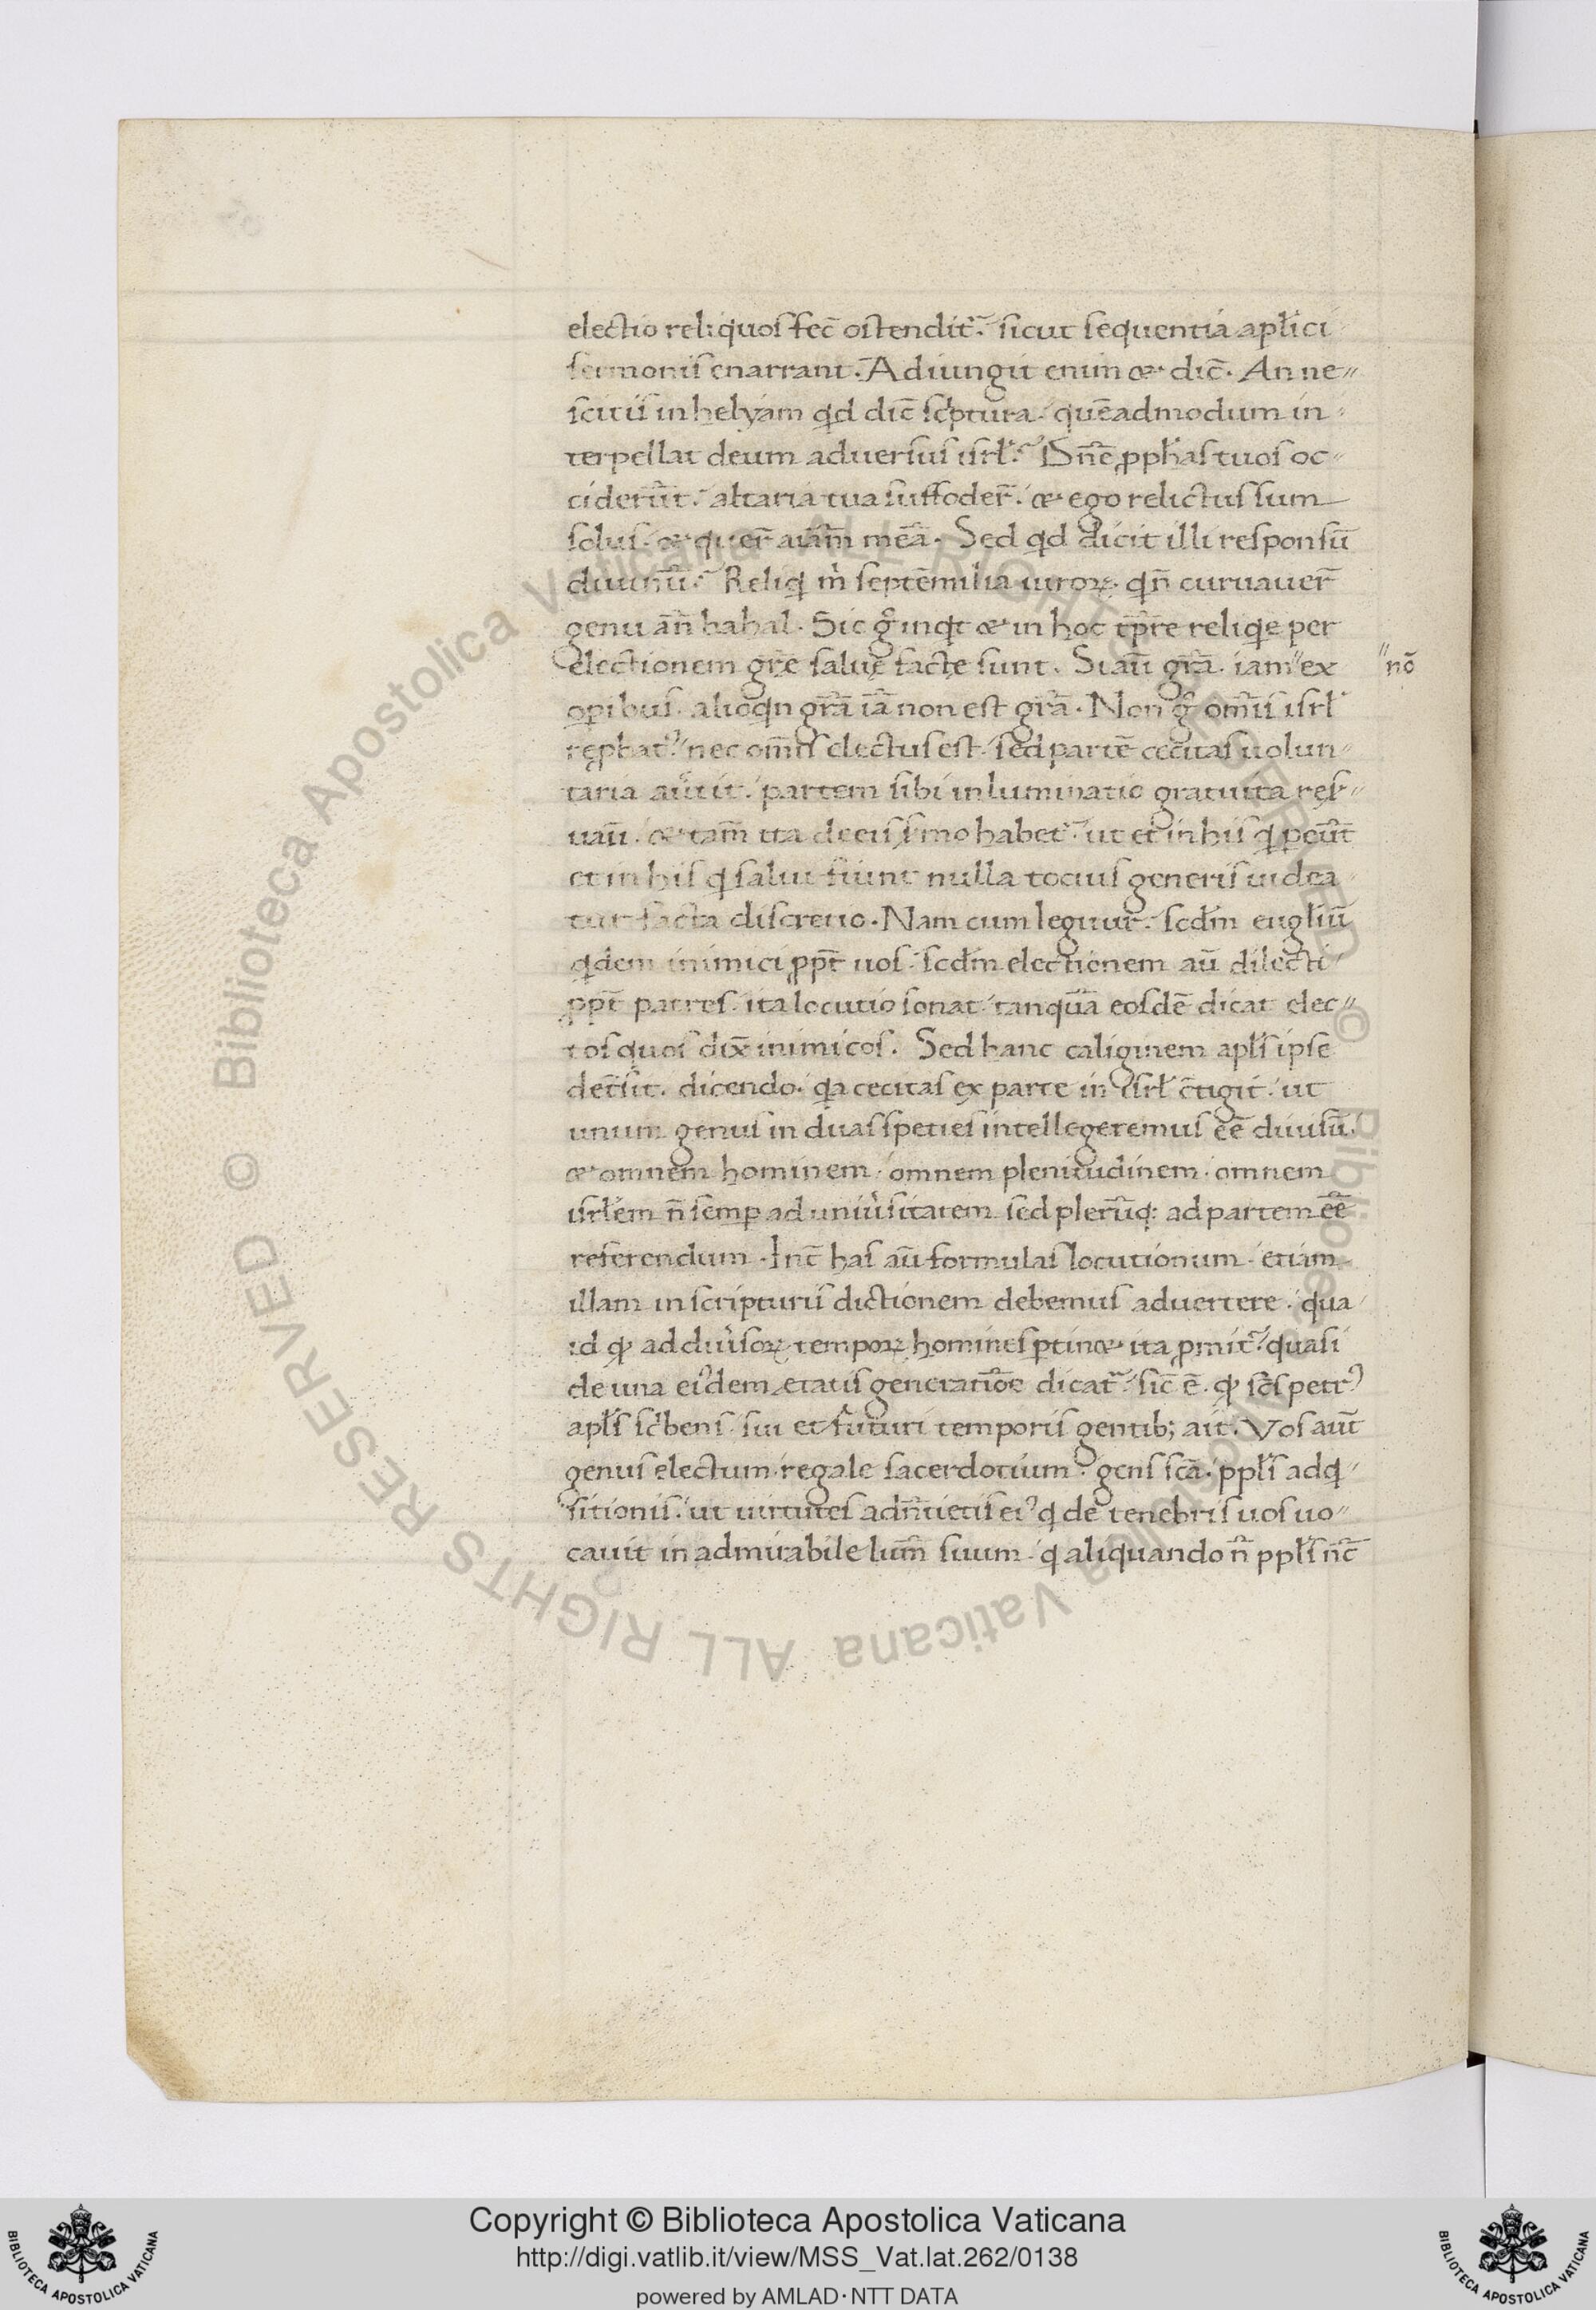 electio reliquos fec̄ ostendit᷑. sicut sequentia apl̄ici
sermonis enarrant. Adiungit enim & dic̄. An ne
scitis in helyam qd dic̄ sc͛ptura. quēadmodum in
terpellat deum adversus isrl̄. Dn̄e ꝓph̄as tuos oc
ciderūt. altaria tua suffoder̄. & ego relictus sum
solus. & quer̄ aīam meā. Sed qd dicit illi responsū
divinū. Reliq m̍ septēmilia viroꝝ. qn̄ curvaver̄
genu an̄ bahal. Sic gͦ inqt & in hoc tp̄re reliqe per
electionem gr̄e salvę factę sunt. Si aū gr̄a. iam ex
nō
opibus. alioqn gr̄a iā non est gr̄a. Non gͦ om̄is isrl̄
rep̱bat᷑. nec om̄is electus est. sed partē cecitas volun
taria av̄tit. partem sibi inluminatio gratuita res̄
vav̄. & tam̄ ita de eis s̄mo habet᷑. ut et in his q peūt
et in his q salvi fiunt nulla totius generis videa
tur facta discretio. Nam cum legitur̄. scd̄m eugliū
qdem inimici ꝓpt̄ vos. scd̄m electionem aū dilecti
ꝓpt̄ patres. ita locutio sonat. tanquā eosdē dicat elec
tos quos dix̄ inimicos. Sed hanc caliginem apl̄s ipse
det̄sit. dicendo. qa cecitas ex parte in isrl̄ c̄tigit. ut
unum genus in duas speties intellegeremus eē divisū.
& omnem hominem. omnem plenitudinem. omnem
isrl̄em n̄ semp ad univ̄sitatem sed plerūq; ad partem eē
referendum. Int̄ has aū formulas locutionum. etiam
illam in scripturis dictionem debemus advertere. qua
id qđ ad div̄soꝝ tempoꝝ homines ptin& ita ꝓmit᷑. quasi
de una eiꝰdem etatis generatiōe dicat᷑. sic̄ ē. qđ sc̄s petrꝰ
apl̄s sc͛bens sui et futuri temporis gentib; ait. Vos aūt
genus electum. regale sacerdotium. gens sc̄a. ppl̄s adq
sitionis. ut virtutes adn̄tietis eiꝰ q de tenebris vos vo
cavit in admirabile lum̄ suum. q aliquando n̄ ppl̄s nc̄
Copyright © Biblioteca Apostolica Vaticana
http://digi.vatlib.it/view/MSS_Vat.lat.262/0138
powered by AMLAD·NTT DATA